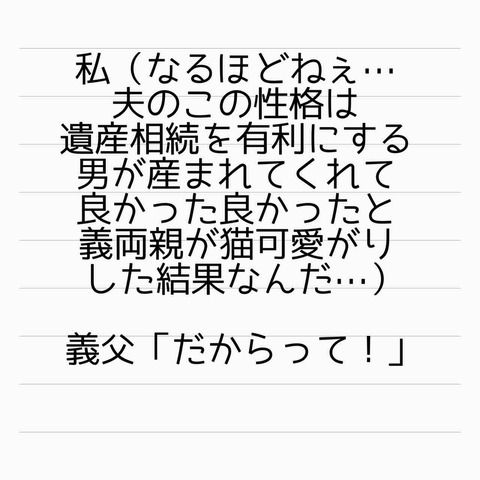 私（なるほどねぇ…
夫のこの性格は
遺産相続を有利にする
男が産まれてくれて
良かった良かったと
義両親が猫可愛がり
した結果なんだ…）
義父「だからって！」